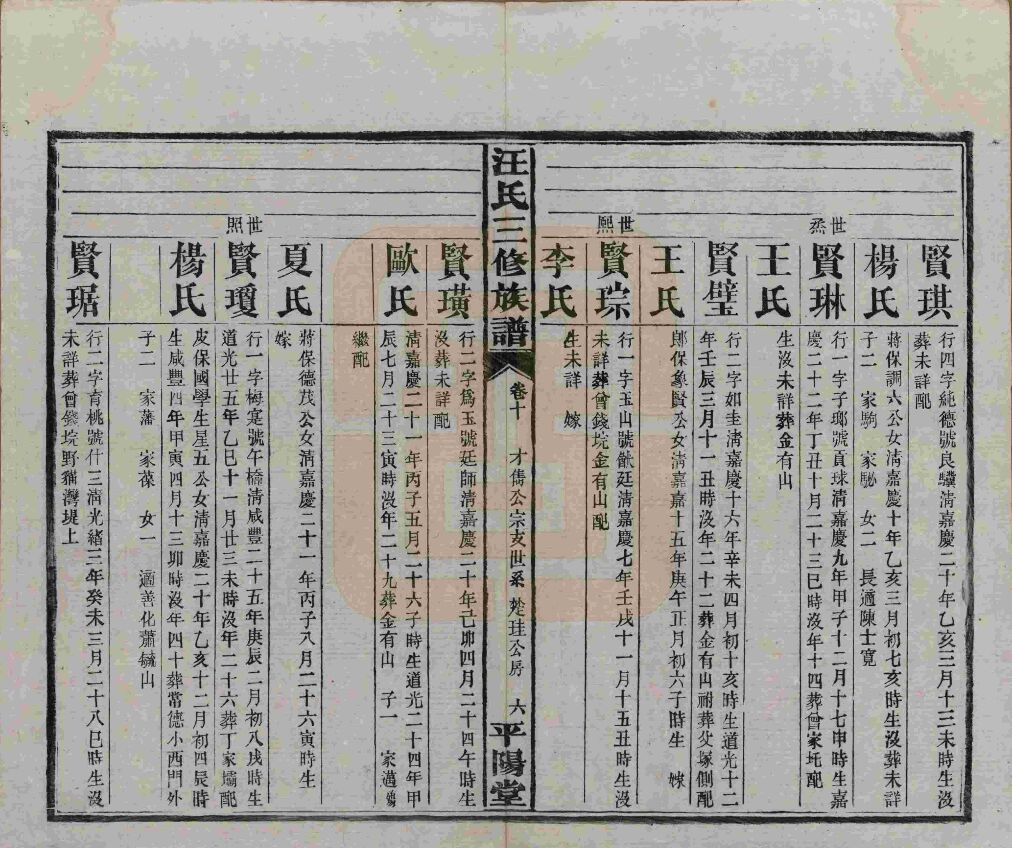 世烝
賢琪
行四字純德號良驥清嘉慶二十年乙亥三月十三未時生沒
葬未詳配
楊氏
蔣保調六公女清嘉慶十年乙亥三月初七亥時生沒葬未詳
子二 家駒 家駜 女二 長適陳士寬
賢琳
行一字子瑯號貢球清嘉慶九年甲子十二月十七申時生嘉
慶二十二年丁丑十月二十三巳時沒年十四葬曾家圫配
王氏
生沒未詳葬金有山
賢璧
行二字如圭清嘉慶十六年辛未四月初十亥時生道光十二
年壬辰三月十一丑時沒年二十二葬金有山祔葬父塚側配
王氏
郎保象賢公女清嘉嘉十五年庚午正月初六子時生 嫁
世熙
賢琮
行一字玉山號猷廷清嘉慶七年壬戌十一月十五丑時生沒
未詳葬曾錢垸金有山配
李氏
生未詳 嫁
汪氏三修族譜
卷十
才雋公宗支世系 楚珪公房
六
平陽堂
賢璜
行二字爲玉號廷師清嘉慶二十年己卯四月二十四午時生
沒葬未詳配
歐氏
清嘉慶二十一年丙子五月二十六子時生道光二十四年甲
辰七月二十三寅時沒年二十九葬金有山 子一 家邁鷄
繼配
夏氏
蔣保德茂公女清嘉慶二十一年丙子八月二十六寅時生
嫁
世照
賢瓊
行一字梅寔號午橋清咸豐二十五年庚辰二月初八戌時生
道光廿五年乙巳十一月廿三未時沒年二十六葬丁家壩配
楊氏
皮保國學生星五公女清嘉慶二十年乙亥十二月初四辰時
生咸豐四年甲寅四月十三卯時沒年四十葬常德小西門外
子二 家藩 家葆 女一 適善化蕭毓山
賢琚
行二字育桃號什三清光緒三年癸未三月二十八巳時生沒
未詳葬曾錢垸野貓灣堤上